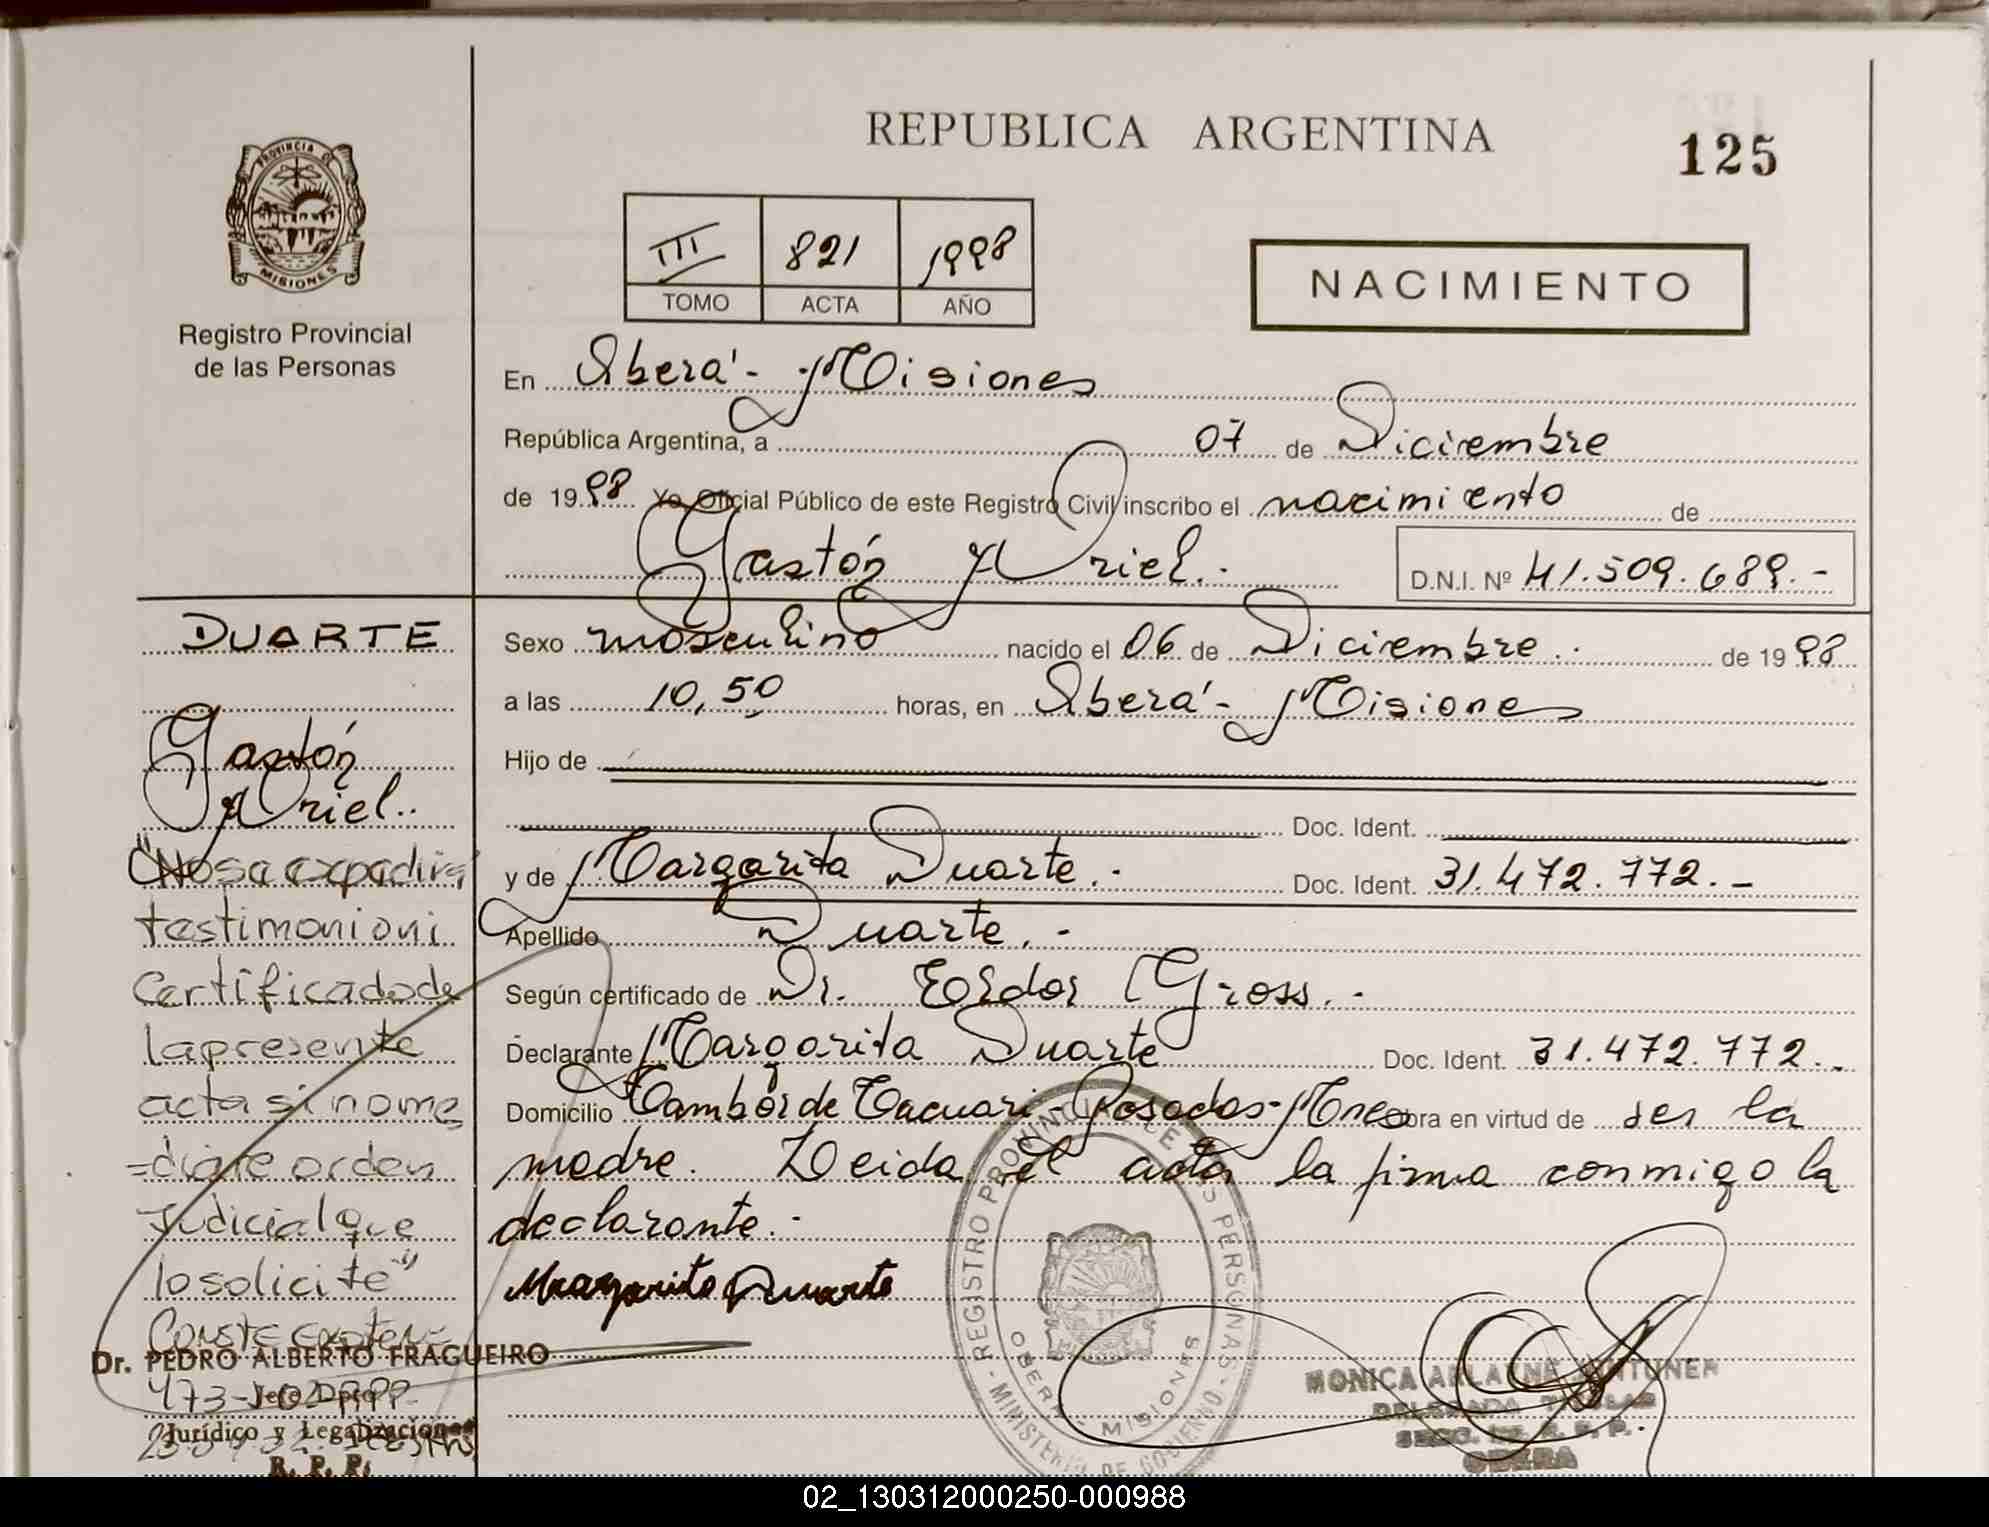 REPUBLICA ARGENTINA
125
PROVINCIA DE
MISIONES
Registro Provincial
de las Personas
III 821 1998
TOMO ACTA AÑO
NACIMIENTO
En Oberá - Misiones
República Argentina, a 07 de Diciembre
de 1998 Yo Oficial Público de este Registro Civil inscribo el nacimiento de
Gastón Ariel.- D.N.I. Nº 41.509.689.-
DUARTE
Gastón
Ariel.
"No se expedirá
testimonio ni
certificado de
la presente
acta si no me
=diare orden
Judicial que
lo solicite"
Conste
Dr. PEDRO ALBERTO FRAGUEIRO
Jefe Dpto.
Jurídico y Legalizaciones
R. P. P.
Sexo masculino nacido el 06 de Diciembre.- de 1998
a las 10,50 horas, en Oberá - Misiones
Hijo de
Doc. Ident.
y de Margarita Duarte.- Doc. Ident. 31.472.772.-
Apellido Duarte.-
Según certificado de Dr. Gross.-
Declarante Margarita Duarte Doc. Ident. 31.472.772.-
Domicilio Tambor de Tacuarí - Posadas - Mnes obra en virtud de ser la
madre. Leida el acta la firma conmigo la
declarante.-
Margarita Duarte
REGISTRO PROVINCIAL DE LAS PERSONAS
MINISTERIO DE GOBIERNO
OBERA - MISIONES
MONICA
DELEGADA TITULAR
R. P. P.
OBERA
02_130312000250-000988